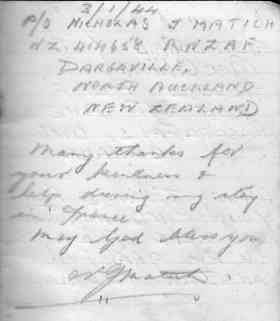 3/1/44
P/O NICHOLAS J MATICH
NZ 414658 R.N.Z.A.F.
DARGAVILLE,
NORTH AUCKLAND
NEW ZEALAND
Many thanks for
your kindness &
help during my stay
in France
May God bless you
N J Matich.